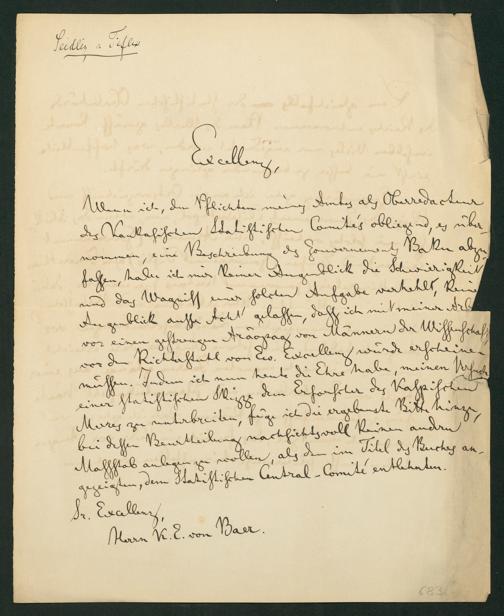 Seidlitz a Tiflis
Excellenz,
Wenn ich, den Pflichten meines Amtes als Oberredacteur
des Kaukasischen Statistischen Comités obliegend, es über
nommen, eine Beschreibung des Gouvernements Baku abzu
fassen, habe ich mir keinen Augenblick die Schwierigkeit
und das Wagniss einer solchen Aufgabe verhehlt, keinen
Augenblick ausser Acht gelassen, dass ich mit meiner Arbeit
vor einen gestrengen Areopag von Männern der Wissenschaft,
vor den Richterstuhl von Ew. Excellenz würde erscheinen
müssen. Indem ich nun heute die Ehre habe, meinen Versuch
einer statistischen Skizze dem Erforscher des Kaspischen
Meeres zu unterbreiten, füge ich die ergebenste Bitte hinzu,
bei dessen Beurtheilung nachsichtsvoll keinen andern
Massstab anlegen zu wollen, als den im Titel des Buches an-
gezeigten, dem Statistischen Central-Comité entlehnten.
Sr. Excellenz,
Herrn K. E. von Baer.
683